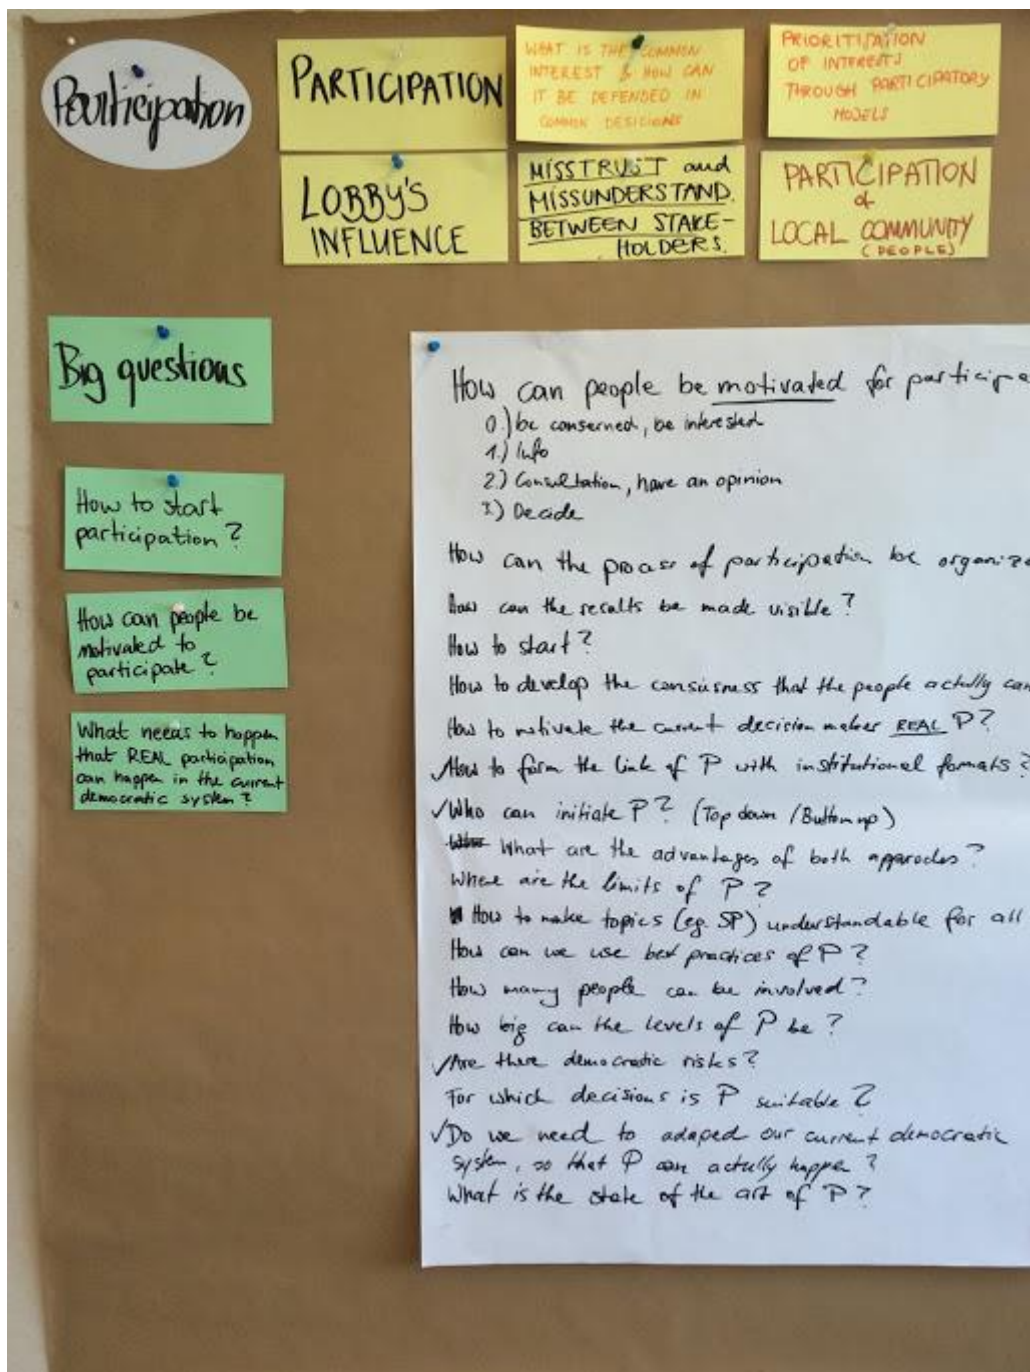 Participation
PARTICIPATION
WHAT IS THE COMMON
INTEREST & HOW CAN
IT BE DEFENDED IN
COMMON DESICIONS
PRIORITISATION
OF INTERESTS
THROUGH PARTICIPATORY
MODELS
LOBBY'S
INFLUENCE
MISSTRUST and
MISSUNDERSTAND.
BETWEEN STAKE-
HOLDERS.
PARTICIPATION
of
LOCAL COMMUNITY
(PEOPLE)
Big questions
How to start
participation?
How can people be
motivated to
participate?
What needs to happen
that REAL participation
can happen in the current
democratic system?
How can people be motivated for participa
0.) be conserned, be interested
1.) Info
2.) Consultation, have an opinion
3.) Decide
How can the process of participation be organiz
How can the results be made visible?
How to start?
How to develop the consiusness that the people actully can
How to motivate the current decision maker REAL P?
✓How to form the link of P with institutional formats?
✓Who can initiate P? (Top down / Buttom up)
What are the advantages of both approches?
Where are the limits of P?
How to make topics (eg. SP) understandable for all
How can we use best practices of P?
How many people can be involved?
How big can the levels of P be?
✓Are there democratic risks?
For which decisions is P suitable?
✓Do we need to adaped our current democratic
system, so that P can actully happen?
What is the state of the art of P?